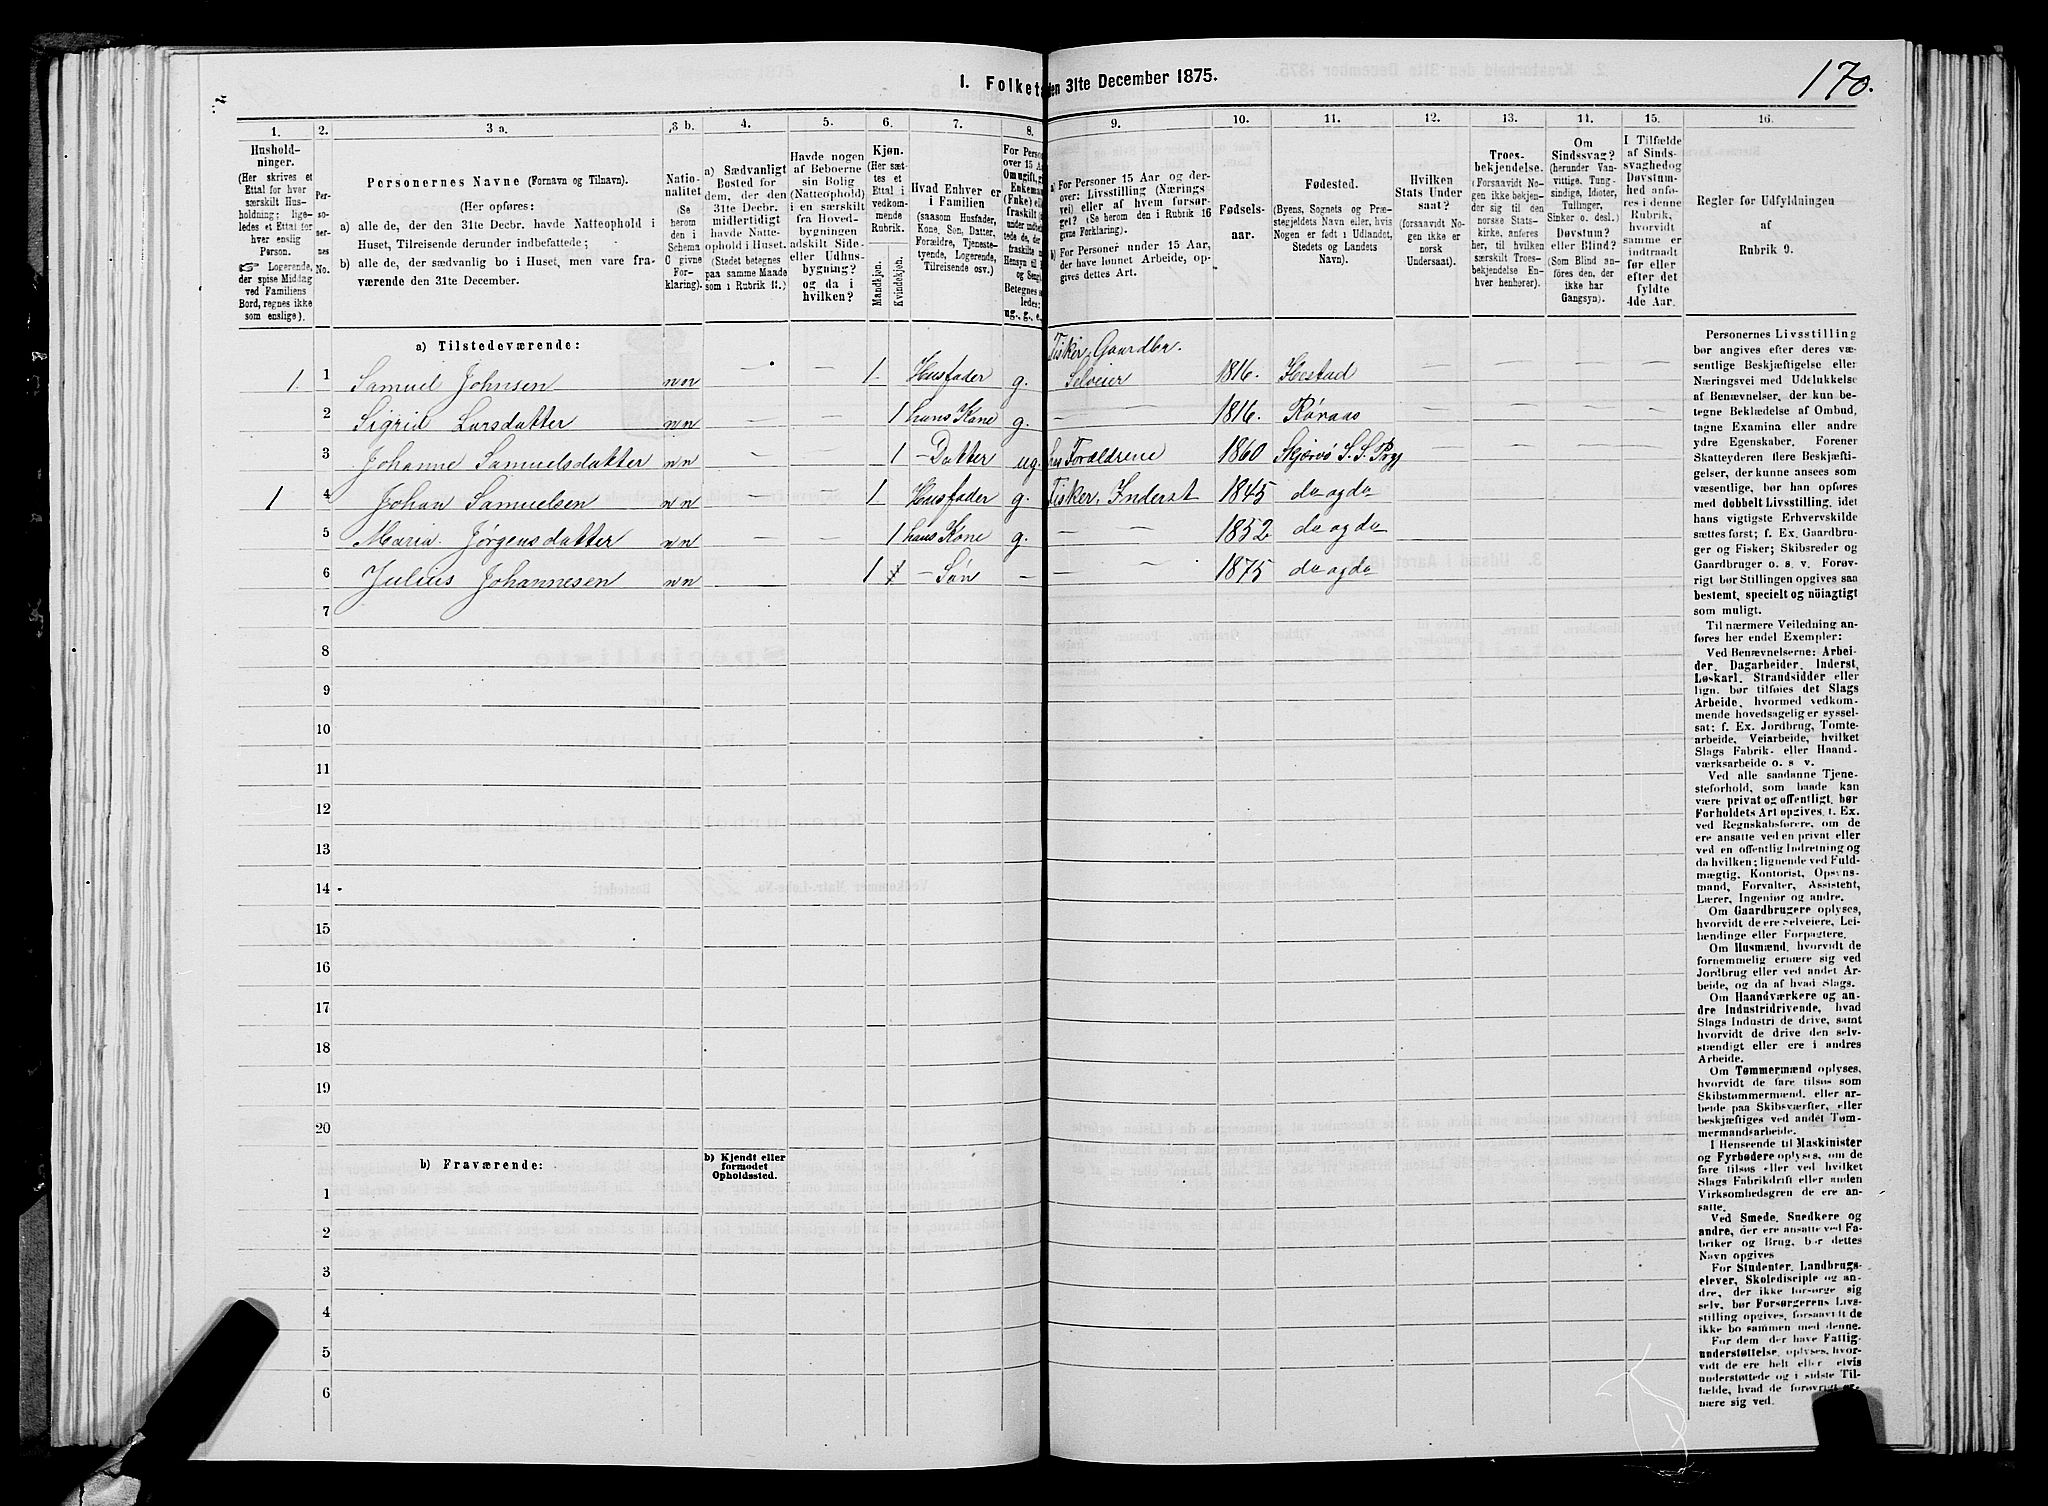 I. Folketæ
den 31te December 1875.
170.
1.
2.
3 a.
3 b.
4.
5.
6.
7.
8.
9.
10.
11.
12.
13.
11.
15.
16.
Husholdninger.
(Her skrives et
Ettal for hver
særskilt Husholdning;
ligeledes et Ettal for
hver enslig
Person.
Logerende,
der spise Middag
ved Familiens
Bord, regnes ikke
som enslige).
Personernes No.
Personernes Navne (Fornavn og Tilnavn).
(Her opføres:
a) alle de, der den 31te Decbr. havde Natteophold i
Huset, Tilreisende derunder indbefattede;
b) alle de, der sædvanlig bo i Huset, men vare fraværende
den 31te December.
Nationalitet
(Se
herom
den i
Schema
C givne
Forklaring).
a) Sædvanligt
Bosted for
dem, der den
31te Decbr.
midlertidigt
havde Natteophold
i Huset.
(Stedet betegnes
paa samme Maade
som i Rubrik 11.)
Havde nogen
af Beboerne
sin Bolig
(Natteophold)
i en særskilt
fra Hovedbygningen
adskilt Side-
eller Udhusbygning?
og da i
hvilken?
Kjøn.
(Her sættes
et
Ettal i
vedkommende
Rubrik.
Mandkjøn.
Kvindekjøn.
Hvad Enhver er
i Familien
(saasom Husfader,
Kone, Søn, Datter,
Forældre, Tjenestetyende,
Logerende,
Tilreisende osv.)
a) For Personer 15 Aar og derover:
Livsstilling (Næringsvei)
eller af hvem forsørget?
(Se herom den i Rubrik 16
givne Forklaring).
b) For Personer under 15 Aar,
der have lønnet Arbeide, opgives
dettes Art.
Fødselsaar.
Fødested.
(Byens, Sognets og Præstegjeldets
Navn eller, hvis
Nogen er født i Udlandet,
Stedets og Landets
Navn).
Hvilken
Stats Undersaat?
(forsaavidt Nogen
ikke er
norsk
Undersaat).
Troesbekjendelse.
(Forsaavidt Nogen
ikke bekjender
sig til den
norske Statskirke,
anføres
her, til hvilken
særskilt Troesbekjendelse
Enhver
henhører).
Om
Sindssvag?
(herunder Vanvittige,
Tungsindige,
Idioter,
Tullinger,
Sinker o. desl.)
Døvstum?
eller Blind?
(Som Blind anføres
den, der
ikke har
Gangsyn).
I Tilfælde
af Sindssvaghed
og
Døvstumhed
anføres
i denne
Rubrik,
hvorvidt
samme er
indtraadt
før eller
efter det
fyldte
4de Aar.
Regler før Udfyldningen
af
Rubrik 9.
a) Tilstedeværende:
1. 1 Samuel Johnsen nn — — 1. Husfader g. Fisker, Gaardbr. Selveier 1816. Hestad — — — —
2 Sigrid Larsdatter nn — — 1 hans Kone g. — 1816. Røraas — — — —
3 Johanne Samuelsdatter nn — — 1 – Datter ug. Forældrene 1860 Skjervø S. S. Prgj — — — —
1 4 Johan Samuelsen nn — — 1 Husfader g. Fisker, Inderst 1845 do og do — — — —
5 Maria Jørgensdatter nn — — 1 hans Kone g. — — 1852 do og do — — — —
6 Julius Johannesen nn — — 1 – Søn — — — 1875 do og do — — — —
7
8
9
10
11
12
13
14
15
16
17
18
19
20
b) Fraværende:
b) Kjendt eller
formodet
Opholdssted.
1
2
3
4
5
6
Personernes Livsstilling
bør angives efter deres væsentlige
Beskjæftigelse eller
Næringsvei med Udelukkelse
af Benævnelser, der kun betegne
Beklædelse af Ombud,
tagne Examina eller andre
ydre Egenskaber. Forener
Skatteyderen flere Beskjæftigelser,
der kunne ansees som
væsentlige, bør han opføres
med dobbelt Livsstilling, idet
hans vigtigste Erhvervskilde
sættes først; f. Ex. Gaardbruger
og Fisker; Skibsreder og
Gaardbruger o. s. v. Forøvrigt
bør Stillingen opgives saa
bestemt, specielt og nøiagtigt
som muligt.
Til nærmere Veiledning anføres
her endel Exempler:
Ved Benævnelserne: Arbeider,
Dagarbeider, Inderst,
Løskarl, Strandsidder eller
lign. bør tilføies det Slags
Arbeide, hvormed vedkommende
hovedsagelig er sysselsat;
f. Ex. Jordbrug, Tomtearbeide,
Veiarbeide, hvilket
Slags Fabrik- eller Haandværksarbeide
o. s. v.
Ved alle saadanne Tjenesteforhold,
som baade kan
være privat og offentligt, bør
Forholdets Art opgives, t. Ex.
ved Regnskabsførere, om de
ere ansatte ved en privat eller
ved en offentlig Indretning og
da hvilken; lignende ved Fuldmægtig,
Kontorist, Opsynsmand,
Forvalter, Assistent,
Lærer, Ingeniør og andre.
Om Gaardbrugere oplyses,
hvorvidt de ere Selveiere, Leilændinge
eller Forpagtere.
Om Husmænd, hvorvidt de
fornemmelig ernære sig ved
Jordbrug eller ved andet Arbeide,
og da af hvad Slags.
Om Haandværkere og andre
Industridrivende, hvad
Slags Industri de drive, samt
hvorvidt de drive den selvstændigt
eller ere i andres
Arbeide.
Om Tømmermænd oplyses,
hvorvidt de fare tilsøs som
Skibstømmermænd, eller arbeide
paa Skibsværfter, eller
beskjæftiges ved andet Tømmermandsarbeide.
I Henseende til Maskinister
og Fyrbødere oplyses, om de
fare tilsøs eller ved hvilket
Slags Fabrikdrift eller anden
Virksomhedsgren de ere ansatte.
Ved Smede, Snedkere og
andre, der ere ansatte ved Fabriker
og Brug, bør dettes
Navn opgives
For Studenter, Landbrugselever,
Skoledisciple og andre,
der ikke forsørge sig
selv, bør Forsørgerens Livsstilling
opgives, forsaavidt de
ikke bo sammen med denne.
For dem, der have Fattigunderstøttelse,
oplyses, hvorvidt
de ere helt eller delvis
understøttede og i sidste Tilfælde,
hvad de forøvrigt ernære
sig ved.